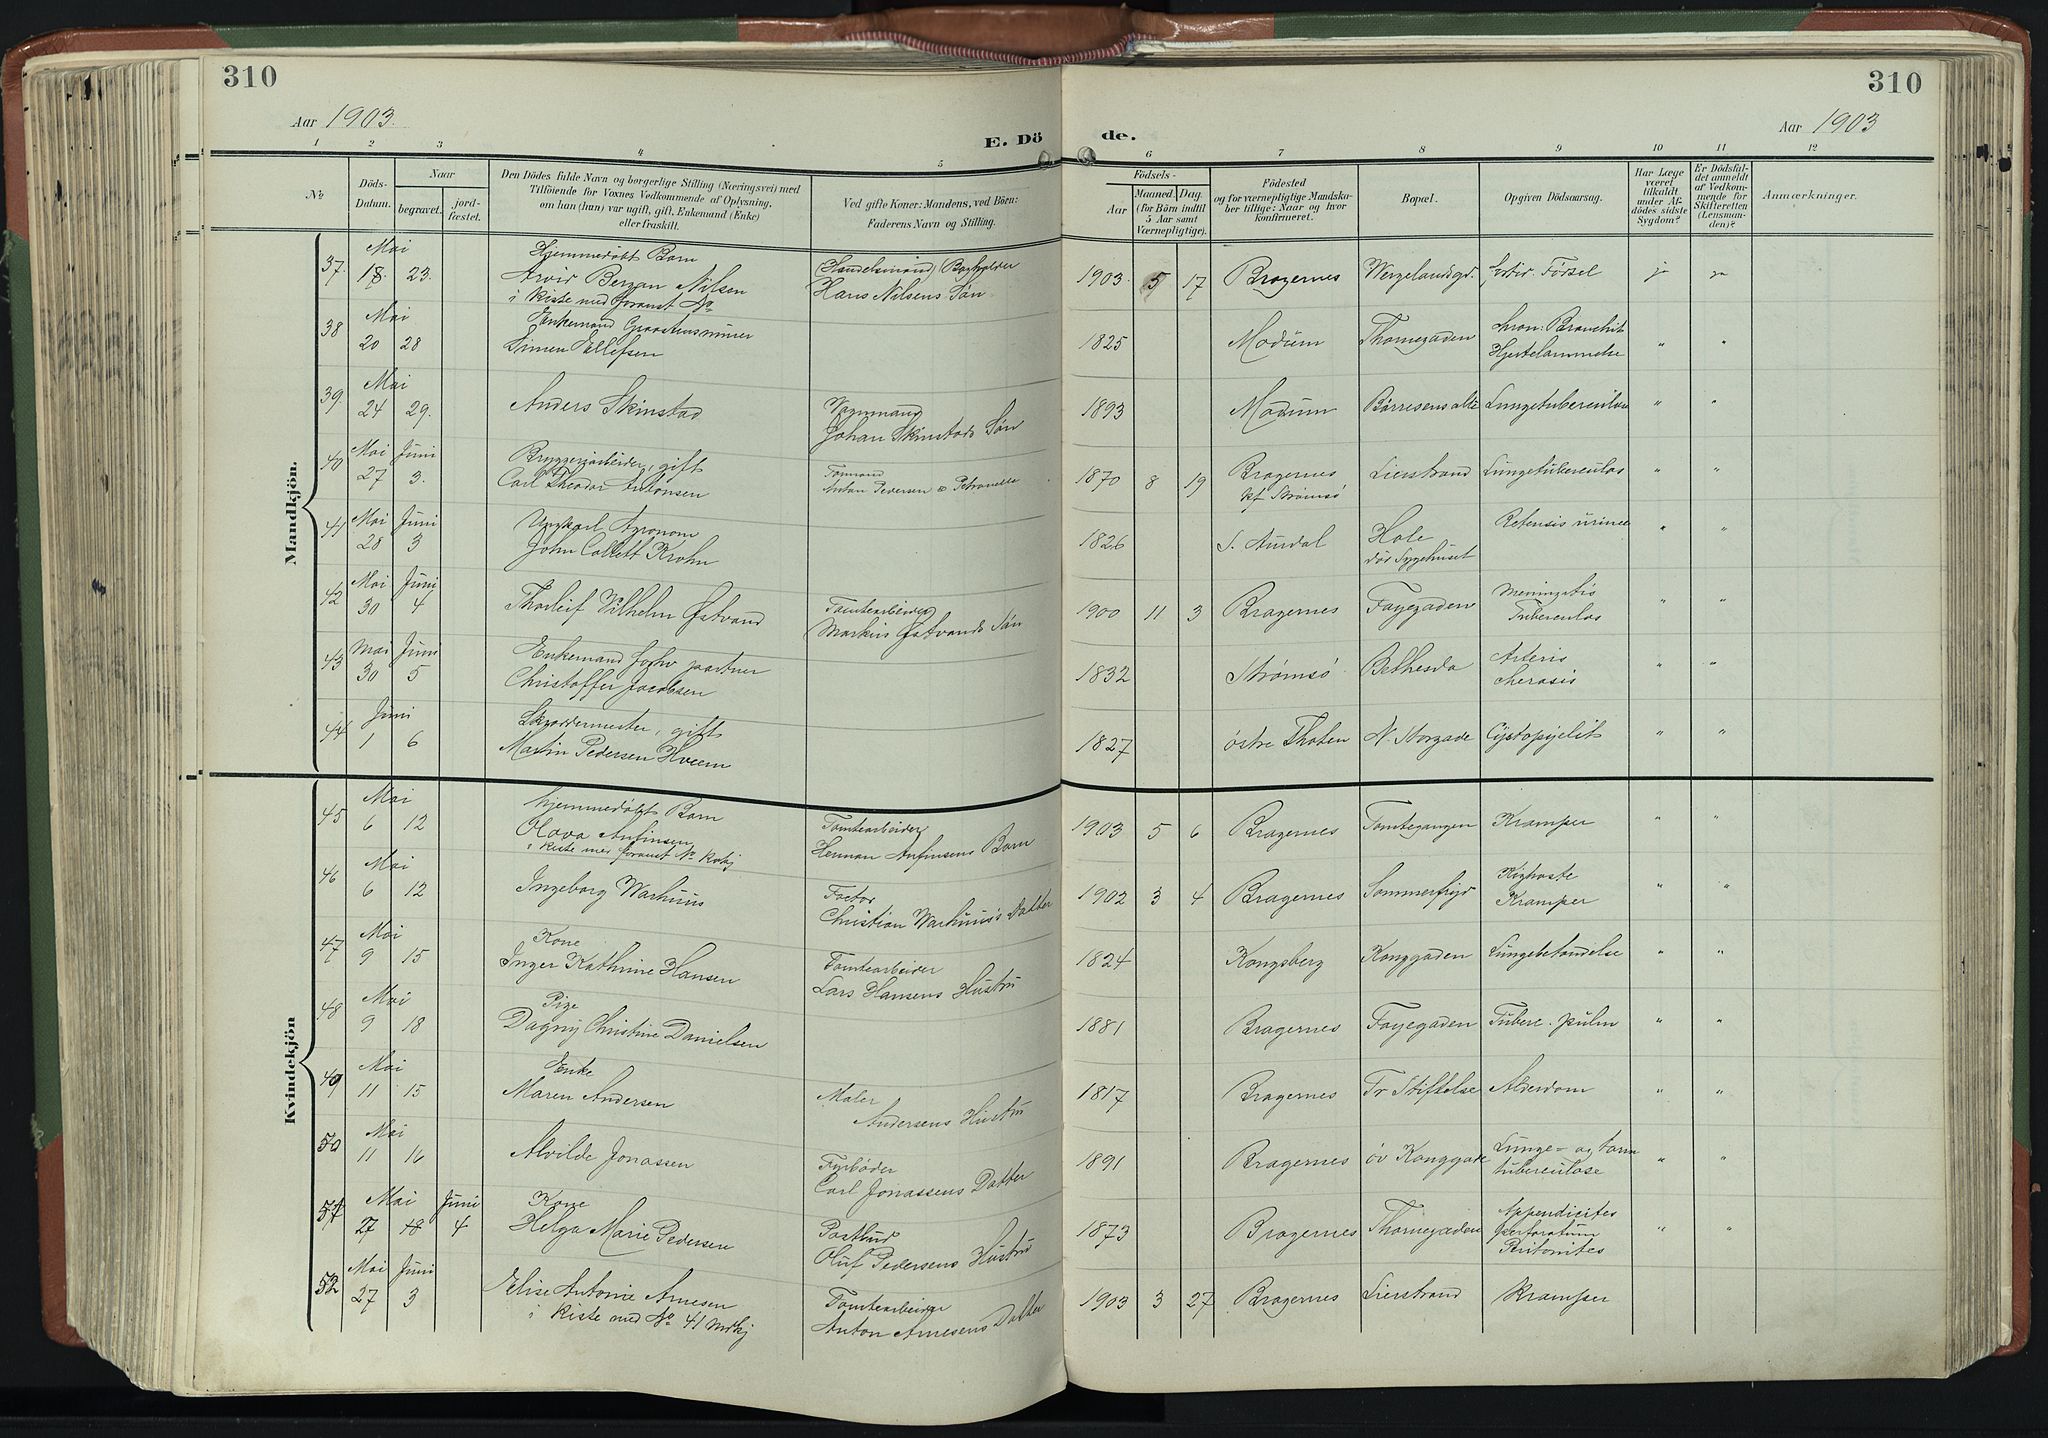 310
310
Aar 1903.
E. Dö
de.
Aar 1903
1 2 3 4 5 6 7 8 9 10 11 12
No
Döds-Datum.
Naar
begravet.
jord-fæstet.
Den Dödes fulde Navn og borgerlige Stilling (Næringsvei) med
Tilföiende for Voxnes Vedkommende af Oplysning,
om han (hun) var ugift, gift, Enkemand (Enke)
eller fraskilt.
Ved gifte Koner: Mandens, ved Börn:
Faderens Navn og Stilling.
Födsels-
Aar
Maaned. Dag.
(for Börn indtil
5 Aar samt
Værnepligtige).
Födested
og for værnepligtige Mandska-
ber tillige: Naar og hvor
konfirmeret.
Bopæl.
Opgiven Dödsaarsag.
Har Læge
været
tilkaldt
under Af-
dödes sidste
Sygdom?
Er Dödsfal-
det anmeldt
af Vedkom-
mende for
Skifteretten
(Lensman-
den)?
Anmærkninger.
Mandkjön.
37. Mai 18. 23. Hjemmedøbt Barn
Arvid Bergan Nilsen
i kiste med foranst No
Handelsmand / Bogholder
Hans Nilsens Søn
1903. 5 17 Bragernes Wergelandsgd. Førsel ja ja
38 Mai 20 28 Enkemand Graastensmurer
Simen Ellefsen
1825 Modum Thornegaden Chron: Bronchit
Hjertelammelse " "
39. Mai 24 29. Anders Skinstad
Vognmand
Johan Skinstads Søn
1893 Modum Børresens alle Lungetuberculose " "
40 Mai 27 Juni 3. Bryggeriarbeider, gift
Carl Theodor Antonsen
Formand
Anton Pedersen & Petronelle
1870 8 19 Bragernes
kf Strømsø
Lierstrand Lungetuberculos " "
41 Mai 28 Juni 3 Ungkarl Agronom
John Collett Krohn
1826 S. Aurdal Hole
død Sygehuset
Retensis urinee " "
42 Mai 30 Juni 4 Thorleif Vilhelm Østvand
Tomtearbeider
Markus Østvands Søn
1900 11 3 Bragernes Fayegaden Meningitis
Tuberculos " "
43 Mai 30 Juni 5 Enkemand
Christoffer Jacobsen
1832 Strømsø Bethesda Arterio
sclerosis " "
44 Juni 1 6 Skræddermester, gift
Martin Pedersen Hveem
1827 østre Thoten N. Storgade Cystopyelit " "
Kvindekjön
45 Mai 6 12 hjemmedøbt Barn
Olava Anfinsen
i kiste med foranst No kvkj
Tomtearbeider
Herman Anfinsens Barn
1903 5 6 Bragernes Tomtegangen Kramper " "
46 Mai 6 12 Ingeborg Warhuus
Factor
Christian Warhuus's Datter
1902 3 4 Bragernes Sommerfryd Kighoste
Kramper " "
47 Mai 9 15 Kone
Inger Kathrine Hansen
Tomtearbeider
Lars Hansens Hustru
1824 Kongsberg Konggaden Lungebetændelse " "
48 Mai 9 18 Pige
Dagny Christine Danielsen
1881 Bragernes Fayegaden Tuberc. pulm " "
49 Mai 11 15 Enke
Maren Andersen
Maler
Andersens Hustru
1817 Bragernes Tr Stiftelse Alderdom " "
50 Mai 11 16 Alvilde Jonassen
Fyrbøder
Carl Jonassens Datter
1891 Bragernes øv Konggade Lunge- og tarm
tuberculose " "
51 Mai 27 18 Juni 4 Kone
Helga Marie Pedersen
Postbud
Oluf Pedersens Hustru
1873 Bragernes Thornegaden Appendicites
perforatum
Peritonites " "
52 Mai 27 Juni 3 Elise Antonie Arnesen
i kiste med No 41 Mdkj
Tomtearbeider
Anton Arnesens Datter
1903 3 27 Bragernes Lierstrand Kramper